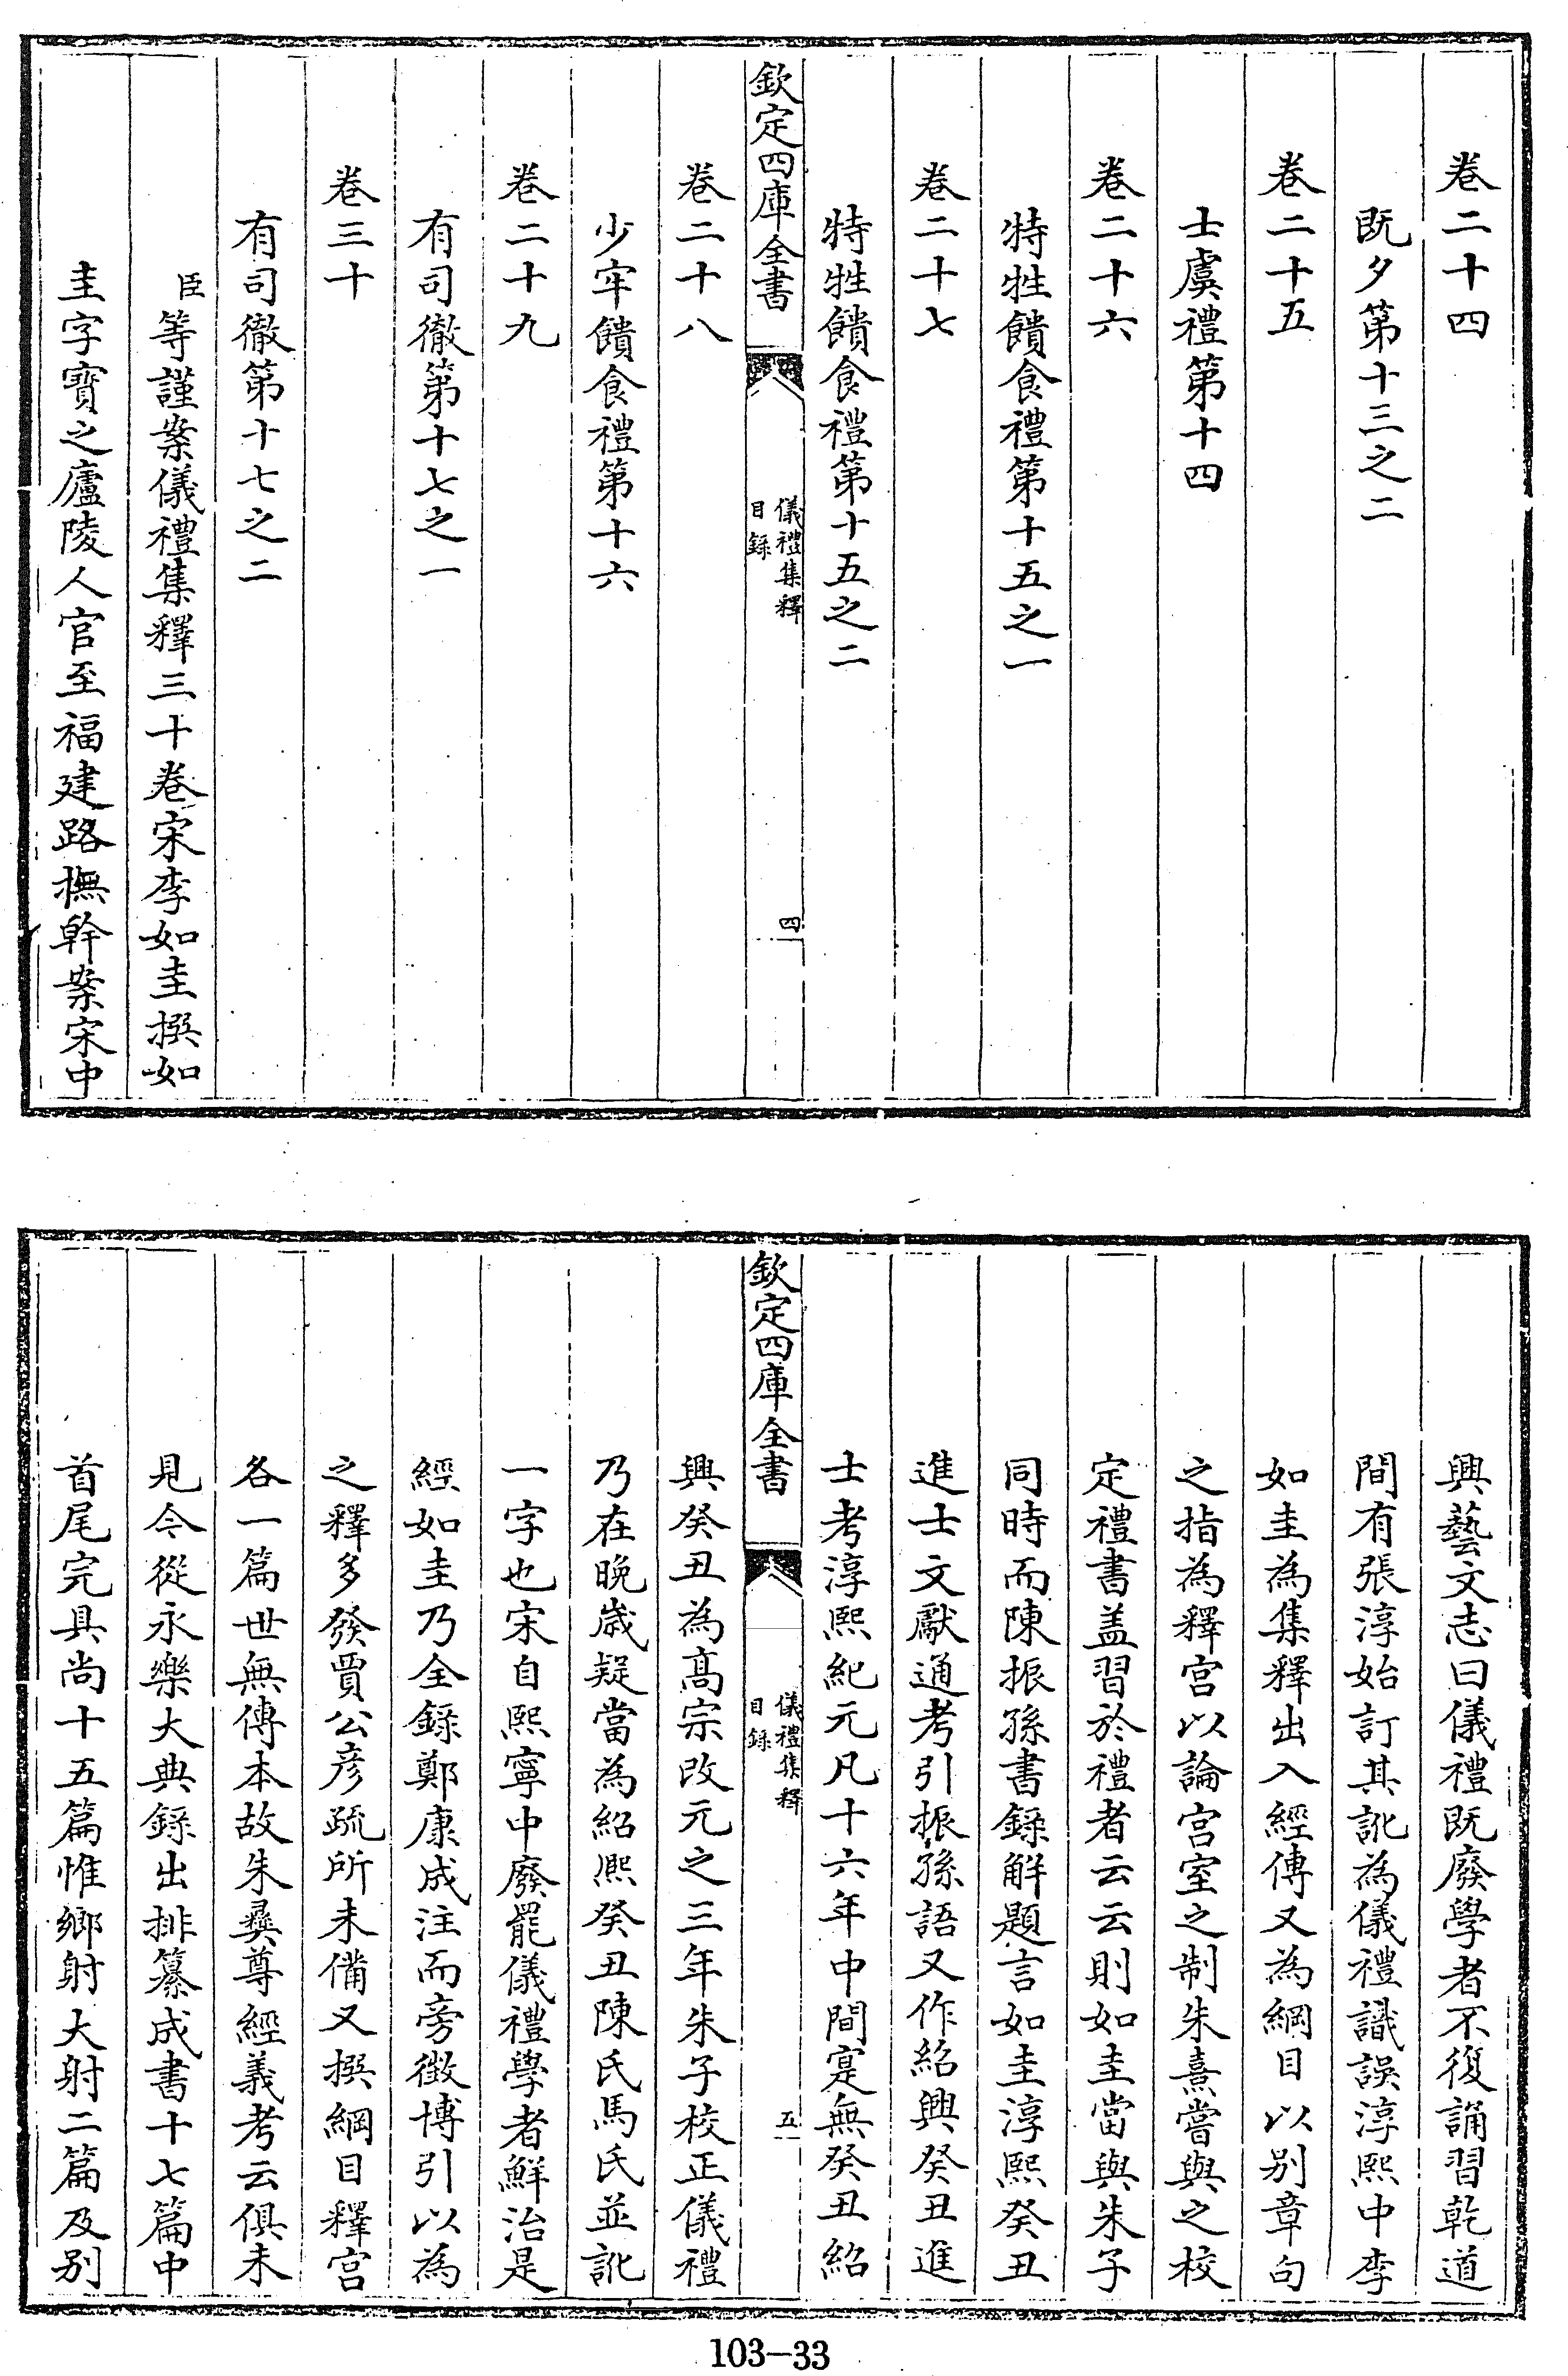 卷二十四
既夕第十三之二
卷二十五
士虞禮第十四
卷二十六
特牲饋食禮第十五之一
卷二十七
特牲饋食禮第十五之二
欽定四庫全書
儀禮集釋
目錄
四
卷二十八
少牢饋食禮第十六
卷二十九
有司徹第十七之一
卷三十
有司徹第十七之二
臣等謹案儀禮集釋三十卷宋李如圭撰如
圭字寶之廬陵人官至福建路撫幹案宋中
興藝文志曰儀禮既廢學者不復誦習乾道
間有張淳始訂其訛為儀禮識誤淳熙中李
如圭為集釋出入經傳又為綱目以别章句
之指為釋宫以論宫室之制朱熹嘗與之校
定禮書盖習於禮者云云則如圭當與朱子
同時而陳振孫書錄解題言如圭淳熙癸丑
進士文獻通考引振孫語又作紹興癸丑進
士考淳熙紀元凡十六年中間寔無癸丑紹
欽定四庫全書
儀禮集釋
目錄
五
興癸丑為髙宗改元之三年朱子校正儀禮
乃在晚歲疑當為紹熈癸丑陳氏馬氏並訛
一字也宋自熙寧中廢罷儀禮學者鮮治是
經如圭乃全錄鄭康成注而旁徴博引以為
之釋多發賈公彦疏所未備又撰綱目釋宫
各一篇世無傳本故朱彛尊經義考云俱未
見今從永樂大典錄出排纂成書十七篇中
首尾完具尚十五篇惟鄉射大射二篇及别
103-33